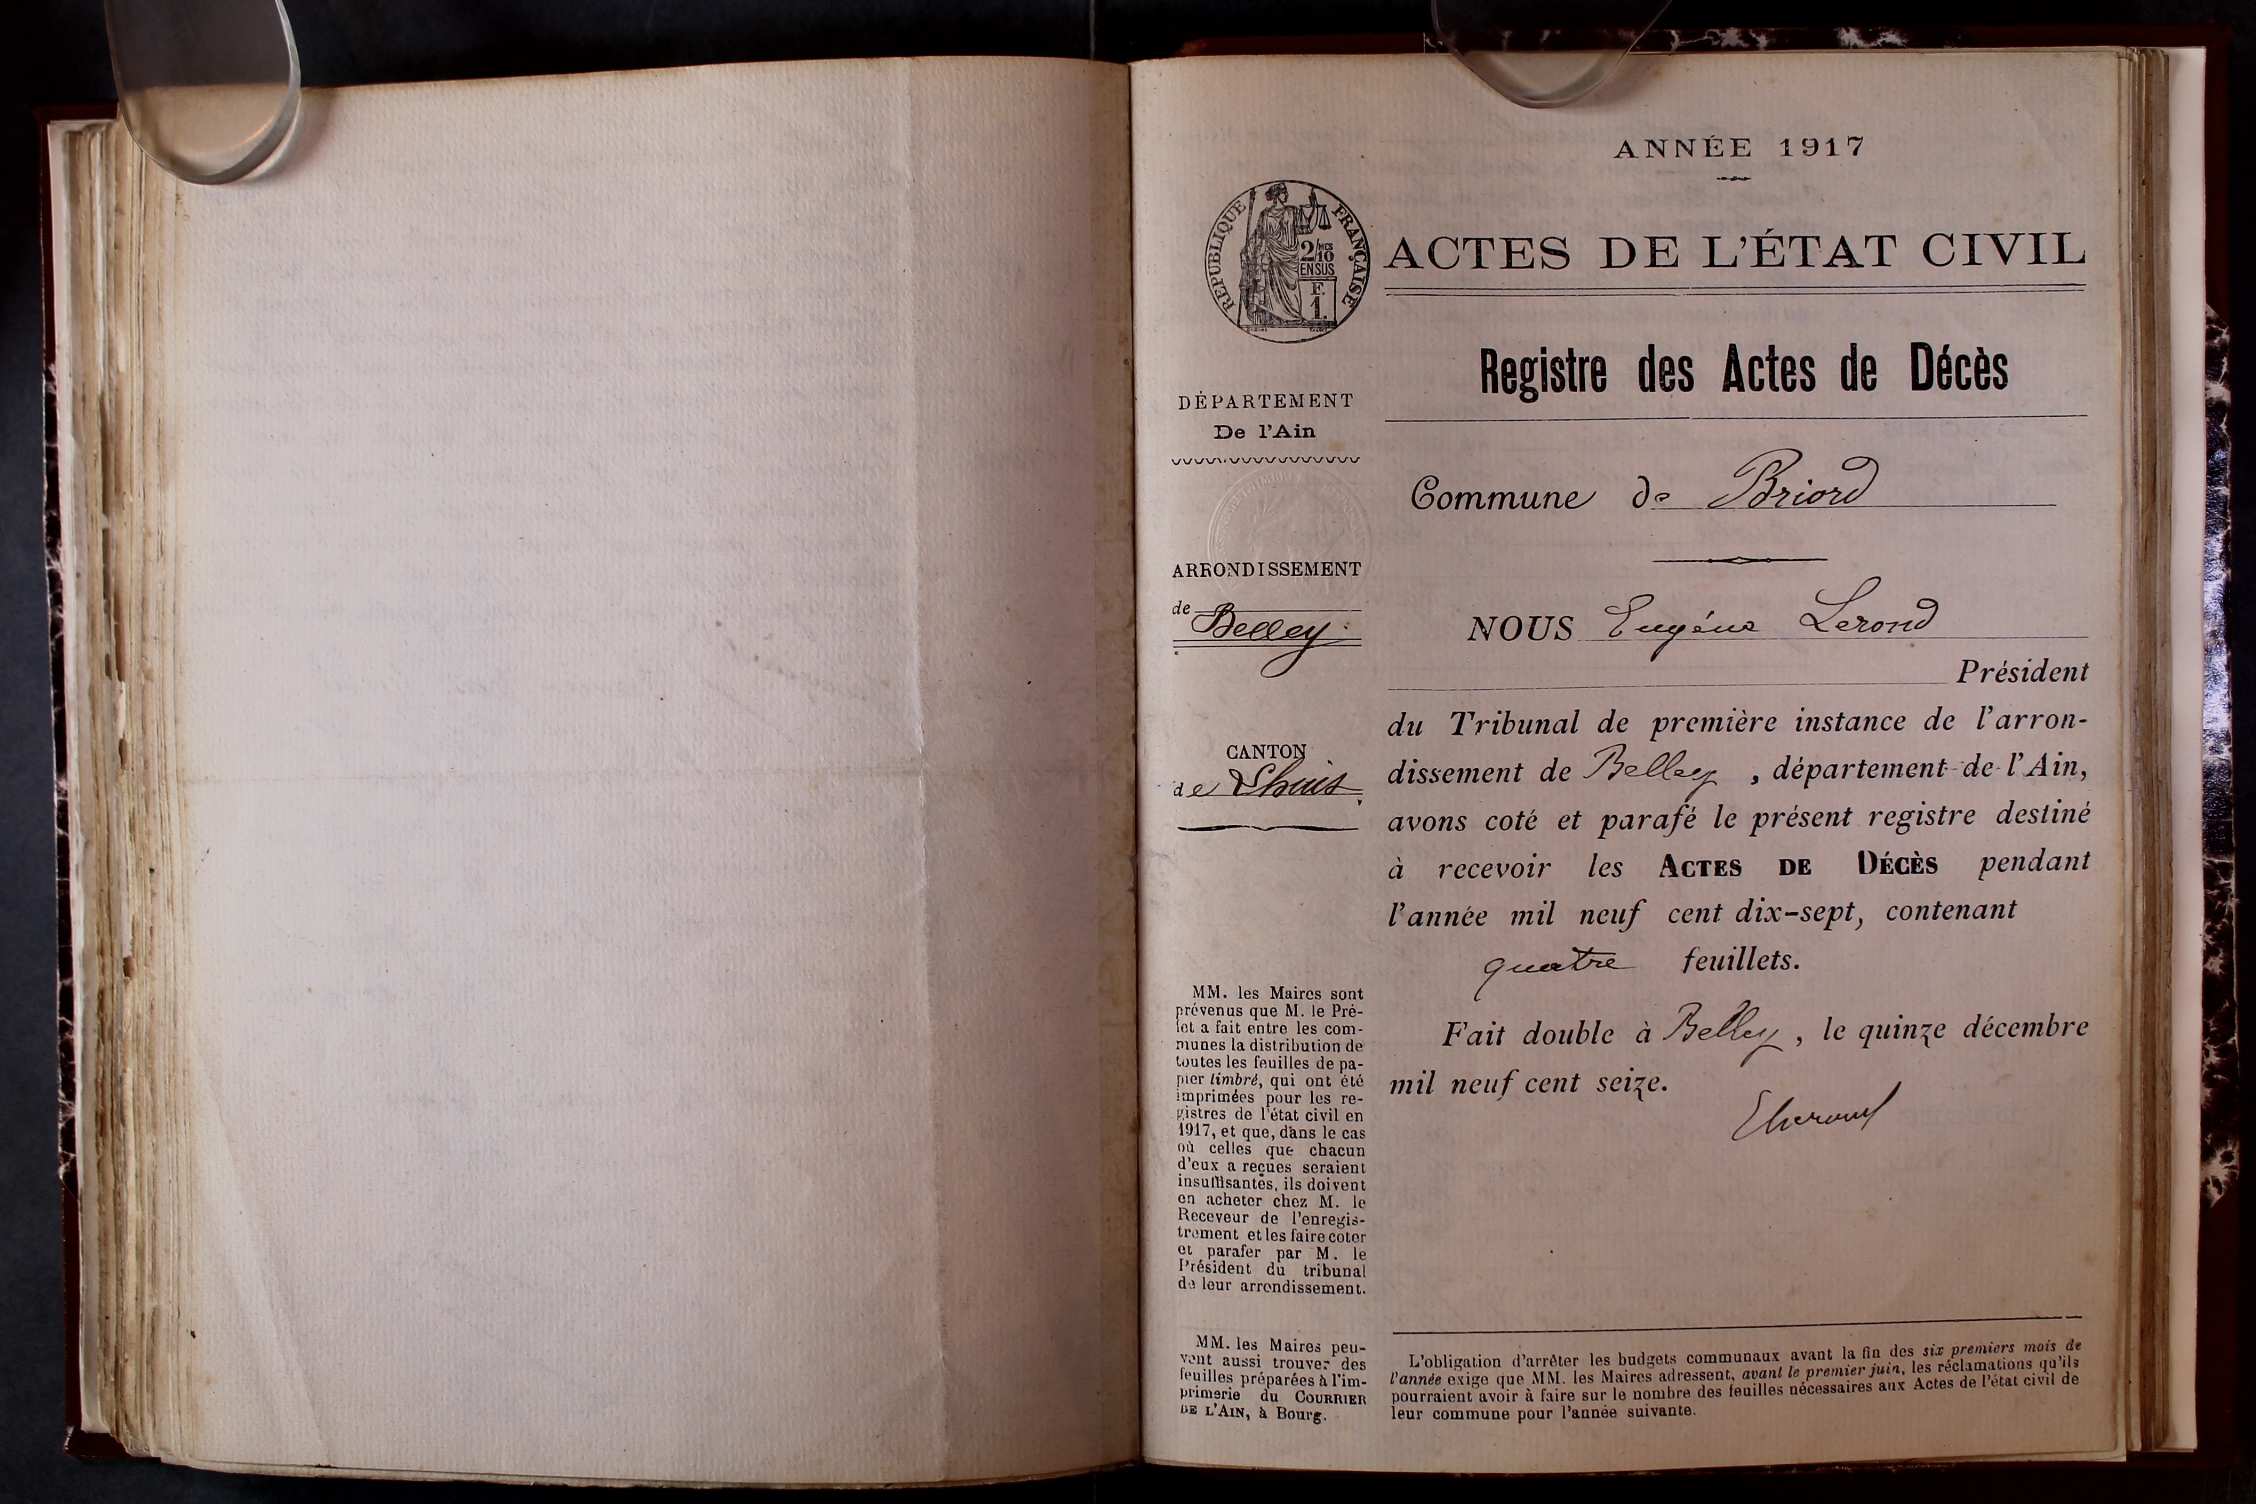 ANNÉE 1917
RÉPUBLIQUE FRANÇAISE
2/MES 10
EN SUS
F.
1.
ACTES DE L'ÉTAT CIVIL
Registre des Actes de Décès
DÉPARTEMENT
De l'Ain
ARRONDISSEMENT
de Belley
CANTON
de Lhuis
MM. les Maires sont
prévenus que M. le Pré-
fet a fait entre les com-
munes la distribution de
toutes les feuilles de pa-
pier timbré, qui ont été
imprimées pour les re-
gistres de l'état civil en
1917, et que, dans le cas
où celles que chacun
d'eux a reçues seraient
insuffisantes, ils doivent
en acheter chez M. le
Receveur de l'enregis-
trement et les faire coter
et parafer par M. le
Président du tribunal
de leur arrondissement.
MM. les Maires peu-
vent aussi trouver des
feuilles préparées à l'im-
primerie du COURRIER
DE L'AIN, à Bourg.
Commune de Briord
NOUS Eugène Lerond
Président
du Tribunal de première instance de l'arron-
dissement de Belley, département de l'Ain,
avons coté et parafé le présent registre destiné
à recevoir les ACTES DE DÉCÈS pendant
l'année mil neuf cent dix-sept, contenant
quatre feuillets.
Fait double à Belley, le quinze décembre
mil neuf cent seize.
L'obligation d'arrêter les budgets communaux avant la fin des six premiers mois de
l'année exige que MM. les Maires adressent, avant le premier juin, les réclamations qu'ils
pourraient avoir à faire sur le nombre des feuilles nécessaires aux Actes de l'état civil de
leur commune pour l'année suivante.